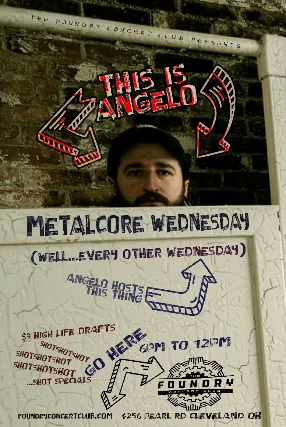 THE FOUNDRY CONCERT CLUB PRESENTS
THIS IS
ANGELO
METALCORE WEDNESDAY
(WELL...EVERY OTHER WEDNESDAY)
ANGELO HOSTS
THIS THING
$3 HIGH LIFE DRAFTS
SHOTSHOTSHOT
SHOTSHOT-SHOT
SHOTSHOTSHOT
...SHOT SPECIALS
GO HERE
6PM TO 12PM
FOUNDRY
FOUNDRYCONCERTCLUB.COM
4256 PEARL RD CLEVELAND OH